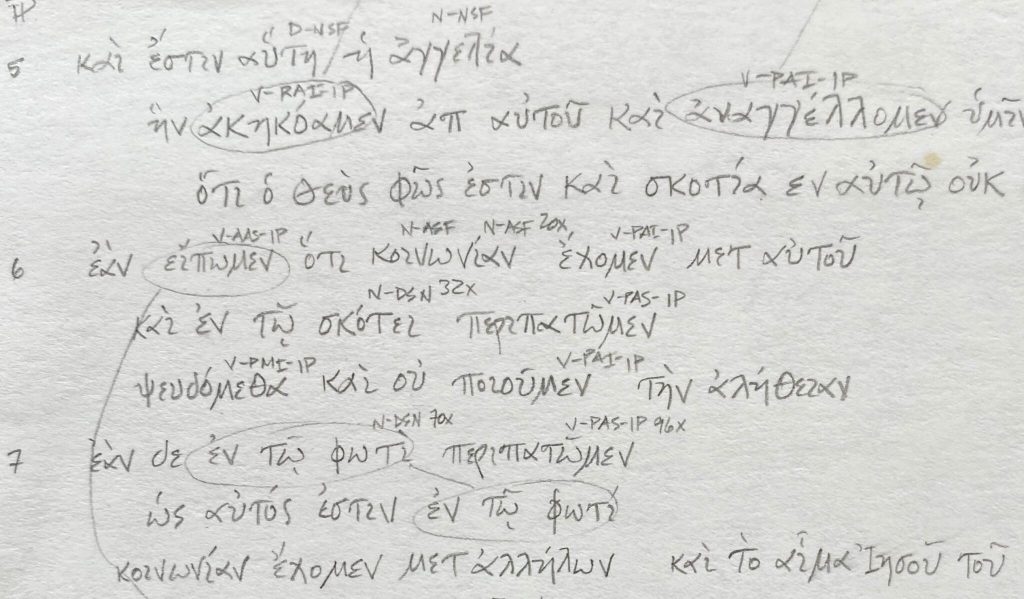 D-NSF N-NSF
5 καὶ ἔστιν αὕτη / ἡ ἀγγελία
V-RAI-1P V-PAI-1P
ἣν ἀκηκόαμεν ἀπ αὐτοῦ καὶ ἀναγγέλλομεν ὑμῖν
ὅτι ὁ θεὸς φῶς ἐστιν καὶ σκοτία εν αὐτῷ οὐκ
V-AAS-1P N-ASF N-ASF 20x, V-PAI-1P
6 ἐὰν εἴπωμεν ὅτι κοινωνίαν ἔχομεν μετ αὐτοῦ
N-DSN 32x V-PAS-1P
καὶ ἐν τῷ σκότει περιπατῶμεν
V-PMI-1P V-PAI-1P
ψευδόμεθα καὶ οὐ ποιοῦμεν τὴν ἀλήθειαν
N-DSN 70x V-PAS-1P 96x
7 ἐὰν δε ἐν τῷ φωτὶ περιπατῶμεν
ὡς αὐτός ἐστιν ἐν τῷ φωτί
κοινωνίαν ἔχομεν μετ ἀλλήλων καὶ τὸ αἷμα Ἰησοῦ τοῦ